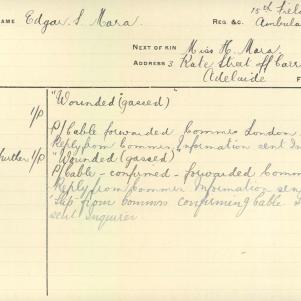 NAME Edgar S. Mara REG &C. 15th Fiel
Ambula
NEXT OF KIN Miss H. Mara
ADDRESS 3 Kate Street off Carr
Adelaide
"Wounded (gassed)"
1/P
P/Cable forwarded Commrs London
Reply from Commrs Information sent In
further 1/P "Wounded (gassed)"
P/Cable - confirmed - forwarded Comm
Reply from Commrs Information sen
"Slip" from Commrs confirming Cable
sent Inquirer